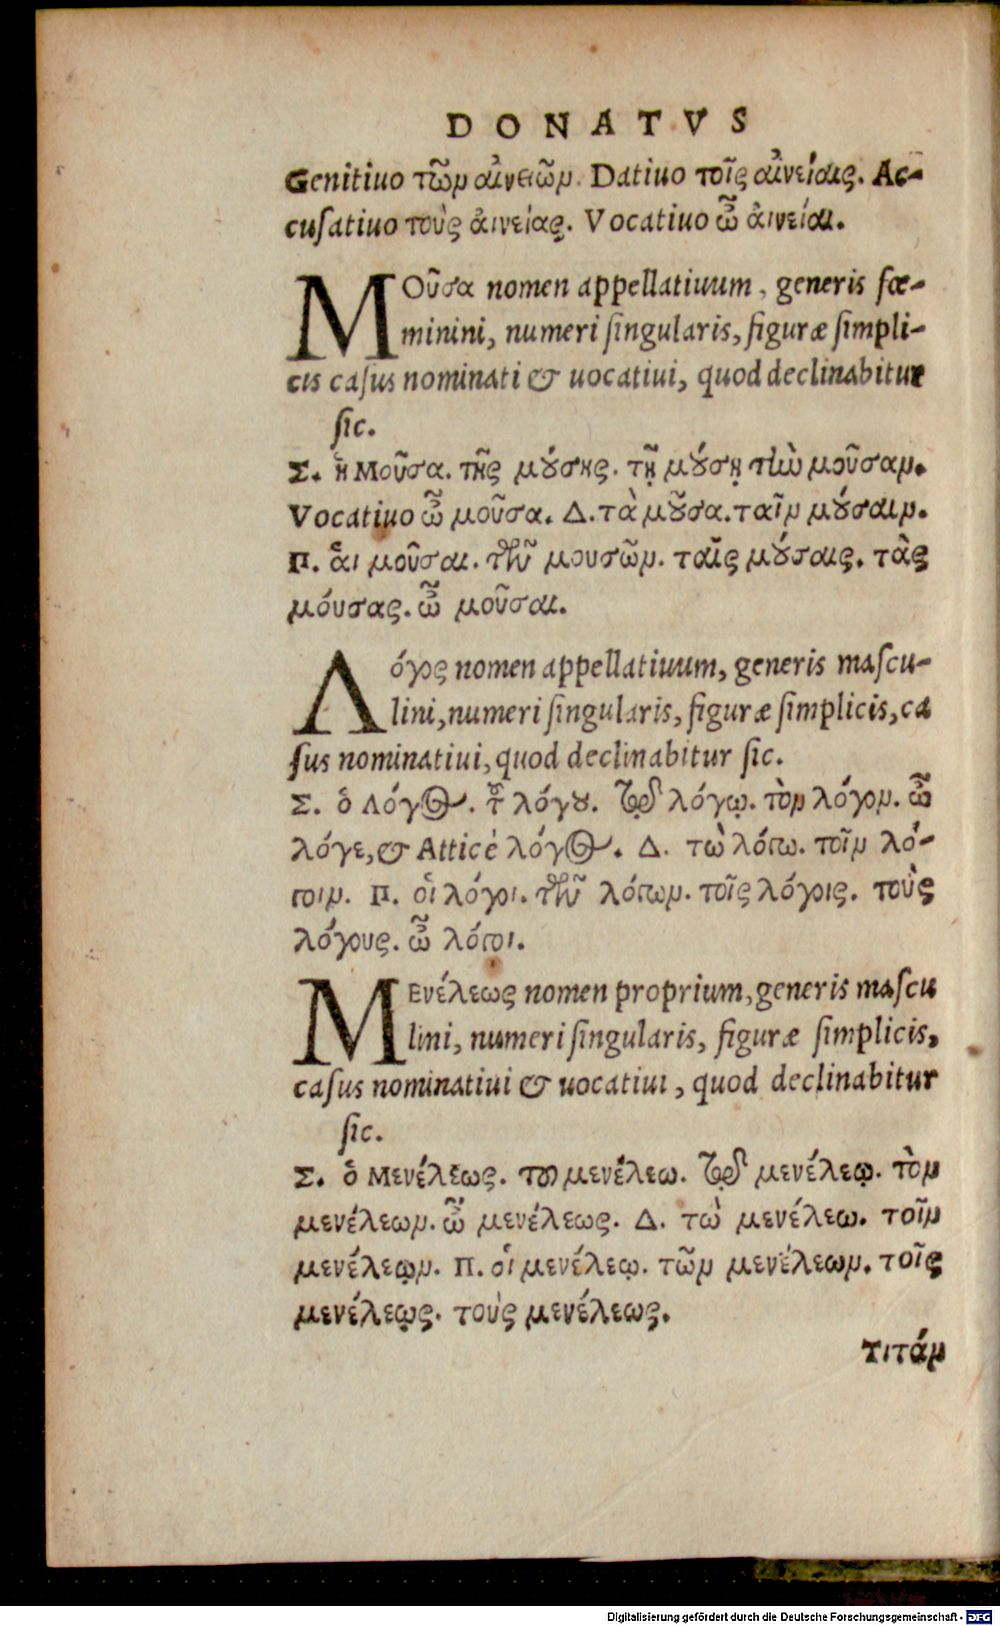 DONATVS
Genitiuo τῶν αἰνειῶν. Datiuo τοῖς αἰνείαις. Ac-
cusatiuo τοὺς ἀινείας. Vocatiuo ὦ ἀινείαι.
ΜΟῦσα nomen appellatiuum, generis fœ-
minini, numeri singularis, figuræ simpli-
cis casus nominati & uocatiui, quod declinabitur
sic.
Σ. ἡ Μοῦσα. τῆς μούσης. τῇ μούσῃ τὴν μοῦσαν.
Vocatiuo ὦ μοῦσα. Δ. τὰ μοῦσα. ταῖν μούσαιν.
Π. ἁι μοῦσαι. τῶν μουσῶν. ταῖς μούσαις. τὰς
μόυσας. ὦ μοῦσαι.
Λόγος nomen appellatiuum, generis mascu-
lini, numeri singularis, figuræ simplicis, ca
sus nominatiui, quod declinabitur sic.
Σ. ὁ Λόγος. τοῦ λόγου. τῷ λόγῳ. τὸν λόγον. ὦ
λόγε, & Atticè λόγος. Δ. τὼ λόγω. τοῖν λό-
γοιν. Π. οἱ λόγοι. τῶν λόγων. τοῖς λόγοις. τοὺς
λόγους. ὦ λόγοι.
ΜΕνέλεως nomen proprium, generis mascu
lini, numeri singularis, figuræ simplicis,
casus nominatiui & uocatiui, quod declinabitur
sic.
Σ. ὁ Μενέλεως. τοῦ μενέλεω. τῷ μενέλεῳ. τὸν
μενέλεων. ὦ μενέλεως. Δ. τὼ μενέλεω. τοῖν
μενέλεῳν. Π. οἱ μενέλεῳ. τῶν μενέλεων. τοῖς
μενέλεῳς. τοὺς μενέλεως.
τιτάν
Digitalisierung gefördert durch die Deutsche Forschungsgemeinschaft - DFG